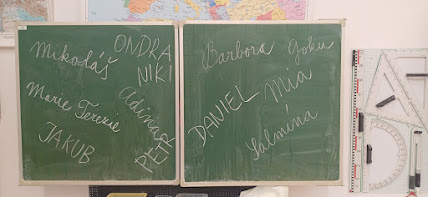 Mikoláš
ONDRA
NIKI
Marie Terezie
Adina
JAKUB
PETR
Barbora Goku
DANIEL
Mia
Salmína